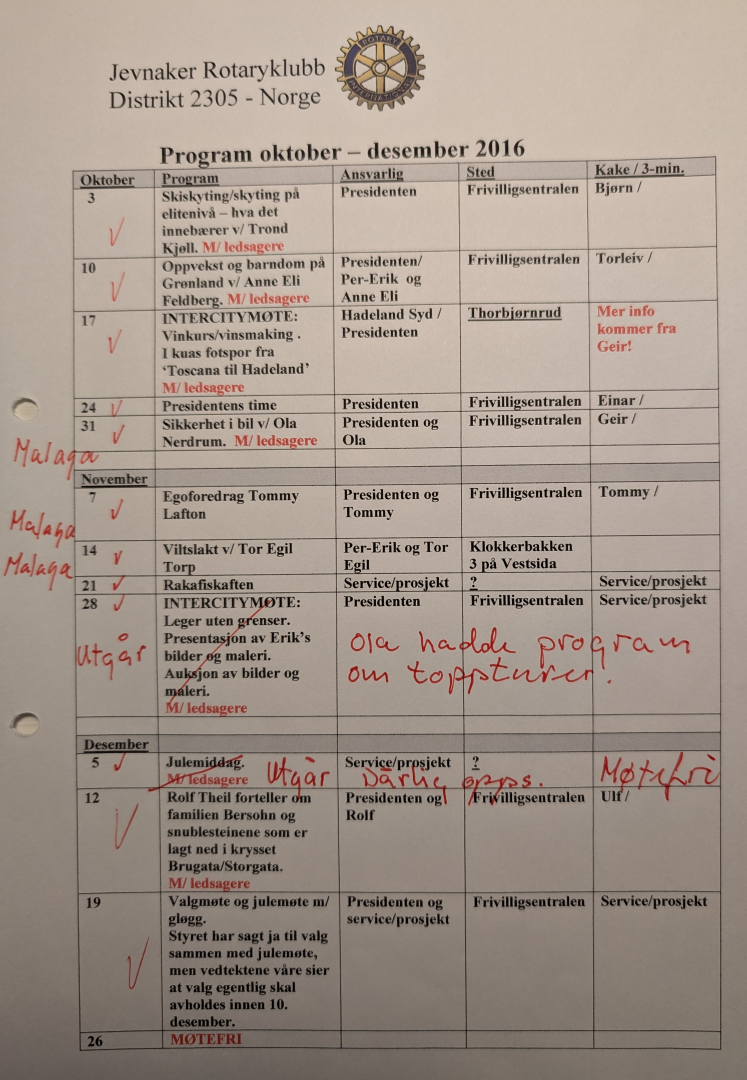 Jevnaker Rotaryklubb
Distrikt 2305 - Norge
ROTARY
INTERNATIONAL
Program oktober – desember 2016
Oktober Program Ansvarlig Sted Kake / 3-min.
3 Skiskyting/skyting på Presidenten Frivilligsentralen Bjørn /
elitenivå – hva det
innebærer v/ Trond
Kjøll. M/ ledsagere
10 Oppvekst og barndom på Presidenten/ Frivilligsentralen Torleiv /
Grønland v/ Anne Eli Per-Erik og
Feldberg. M/ ledsagere Anne Eli
17 INTERCITYMØTE: Hadeland Syd / Thorbjørnrud Mer info
Vinkurs/vinsmaking . Presidenten kommer fra
I kuas fotspor fra Geir!
‘Toscana til Hadeland’
M/ ledsagere
24 Presidentens time Presidenten Frivilligsentralen Einar /
31 Sikkerhet i bil v/ Ola Presidenten og Frivilligsentralen Geir /
Nerdrum. M/ ledsagere Ola
Malaga
November
7 Egoforedrag Tommy Presidenten og Frivilligsentralen Tommy /
Lafton Tommy
Malaga
14 Viltslakt v/ Tor Egil Per-Erik og Tor Klokkerbakken
Torp Egil 3 på Vestsida
Malaga
21 Rakafiskaften Service/prosjekt ? Service/prosjekt
28 INTERCITYMØTE: Presidenten Frivilligsentralen Service/prosjekt
Leger uten grenser.
Presentasjon av Erik’s
bilder og maleri.
Auksjon av bilder og
maleri.
M/ ledsagere
Utgår
Ola hadde program
om toppturer.
Desember
5 Julemiddag. Service/prosjekt ?
M/ ledsagere Utgår Dårlig opps. Møtefri
12 Rolf Theil forteller om Presidenten og Frivilligsentralen Ulf /
familien Bersohn og Rolf
snublesteinene som er
lagt ned i krysset
Brugata/Storgata.
M/ ledsagere
19 Valgmøte og julemøte m/ Presidenten og Frivilligsentralen Service/prosjekt
gløgg. service/prosjekt
Styret har sagt ja til valg
sammen med julemøte,
men vedtektene våre sier
at valg egentlig skal
avholdes innen 10.
desember.
26 MØTEFRI